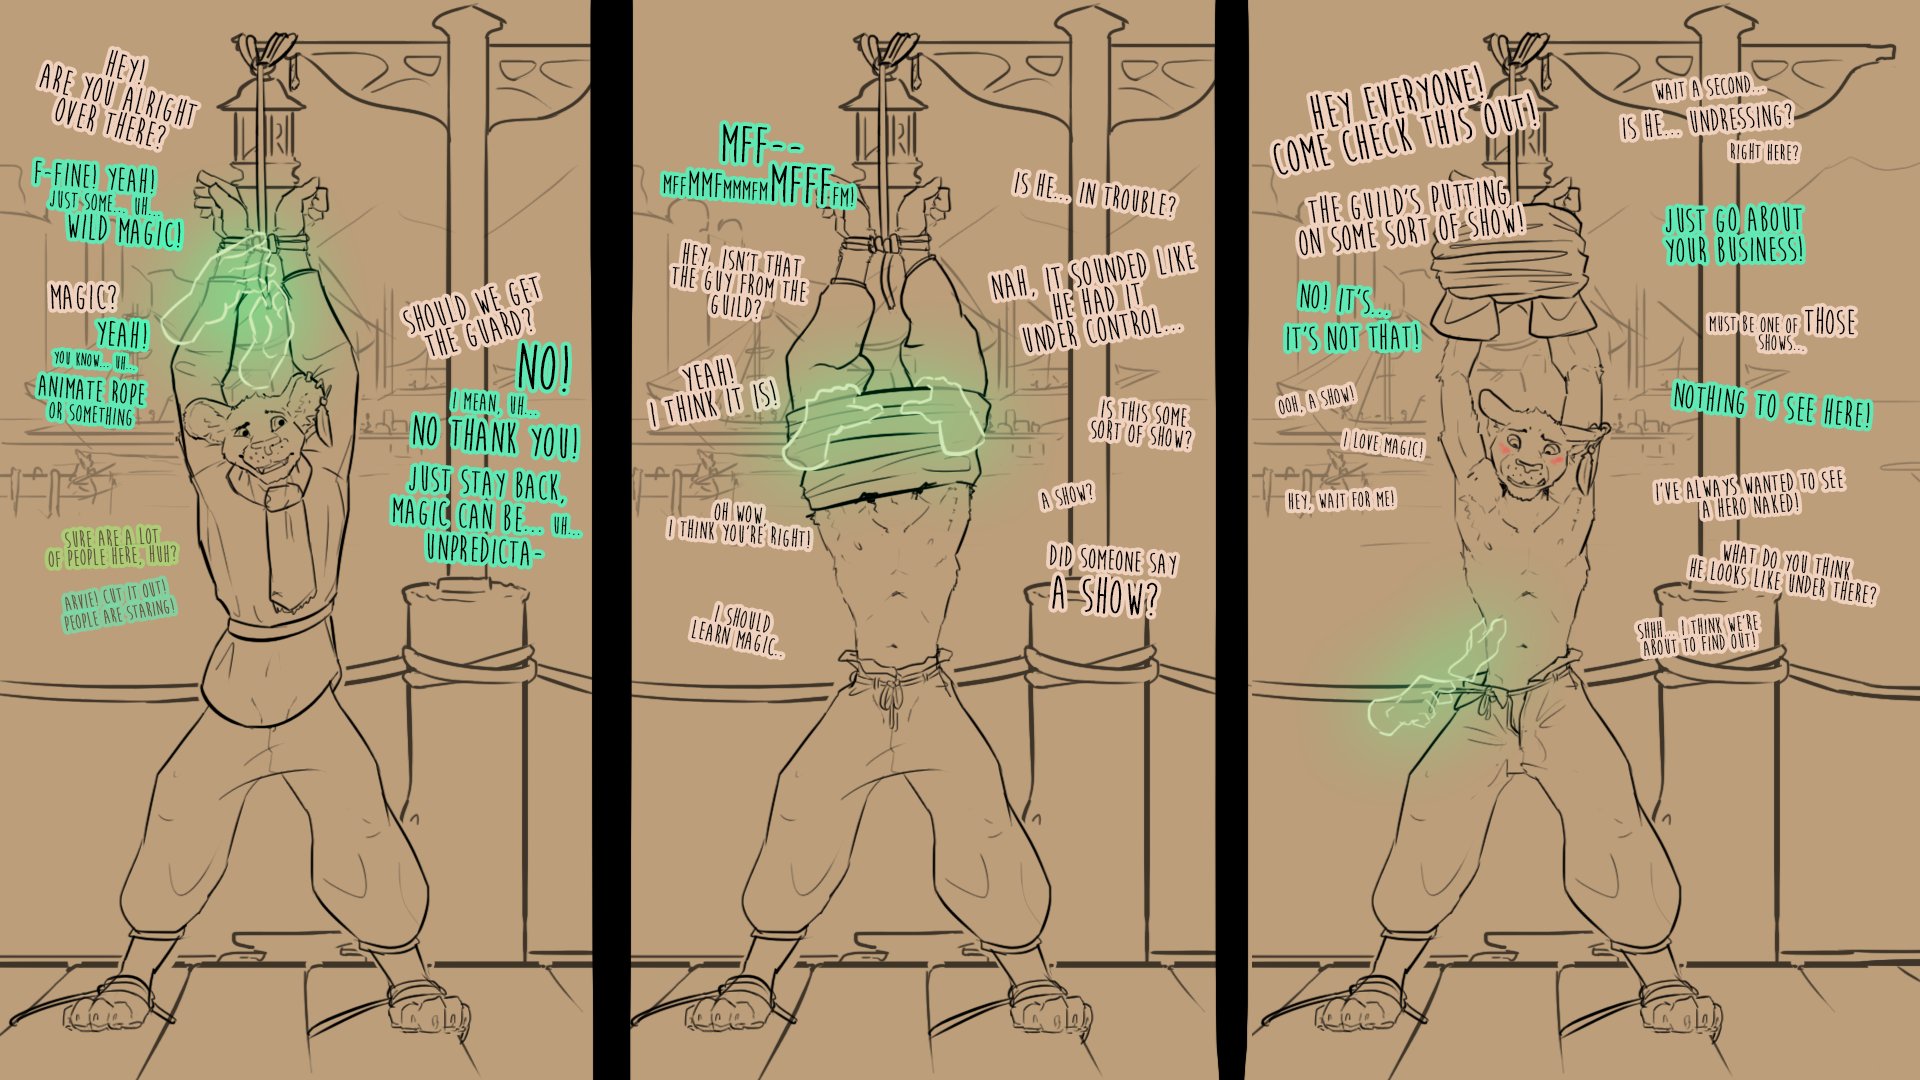 HEY!
ARE YOU ALRIGHT
OVER THERE?
F-FINE! YEAH!
JUST SOME... UH...
WILD MAGIC!
MAGIC?
YEAH!
YOU KNOW... UH...
ANIMATE ROPE
OR SOMETHING
SHOULD WE GET
THE GUARD?
NO!
I MEAN, UH...
NO THANK YOU!
JUST STAY BACK,
MAGIC CAN BE... UH...
UNPREDICTA-
SURE ARE A LOT
OF PEOPLE HERE, HUH?
ARVIE! CUT IT OUT!
PEOPLE ARE STARING!
MFF--
MFFMMFMMMFMMFFFFM!
IS HE... IN TROUBLE?
HEY, ISN'T THAT
THE GUY FROM THE
GUILD?
NAH, IT SOUNDED LIKE
HE HAD IT
UNDER CONTROL...
YEAH!
I THINK IT IS!
IS THIS SOME
SORT OF SHOW?
OH WOW,
I THINK YOU'RE RIGHT!
A SHOW?
DID SOMEONE SAY
A SHOW?
I SHOULD
LEARN MAGIC..
HEY EVERYONE!
COME CHECK THIS OUT!
WAIT A SECOND...
IS HE... UNDRESSING?
RIGHT HERE?
THE GUILD'S PUTTING
ON SOME SORT OF SHOW!
JUST GO ABOUT
YOUR BUSINESS!
NO! IT'S...
IT'S NOT THAT!
MUST BE ONE OF THOSE
SHOWS...
OOH, A SHOW!
NOTHING TO SEE HERE!
I LOVE MAGIC!
HEY, WAIT FOR ME!
I'VE ALWAYS WANTED TO SEE
A HERO NAKED!
WHAT DO YOU THINK
HE LOOKS LIKE UNDER THERE?
SHHH... I THINK WE'RE
ABOUT TO FIND OUT!